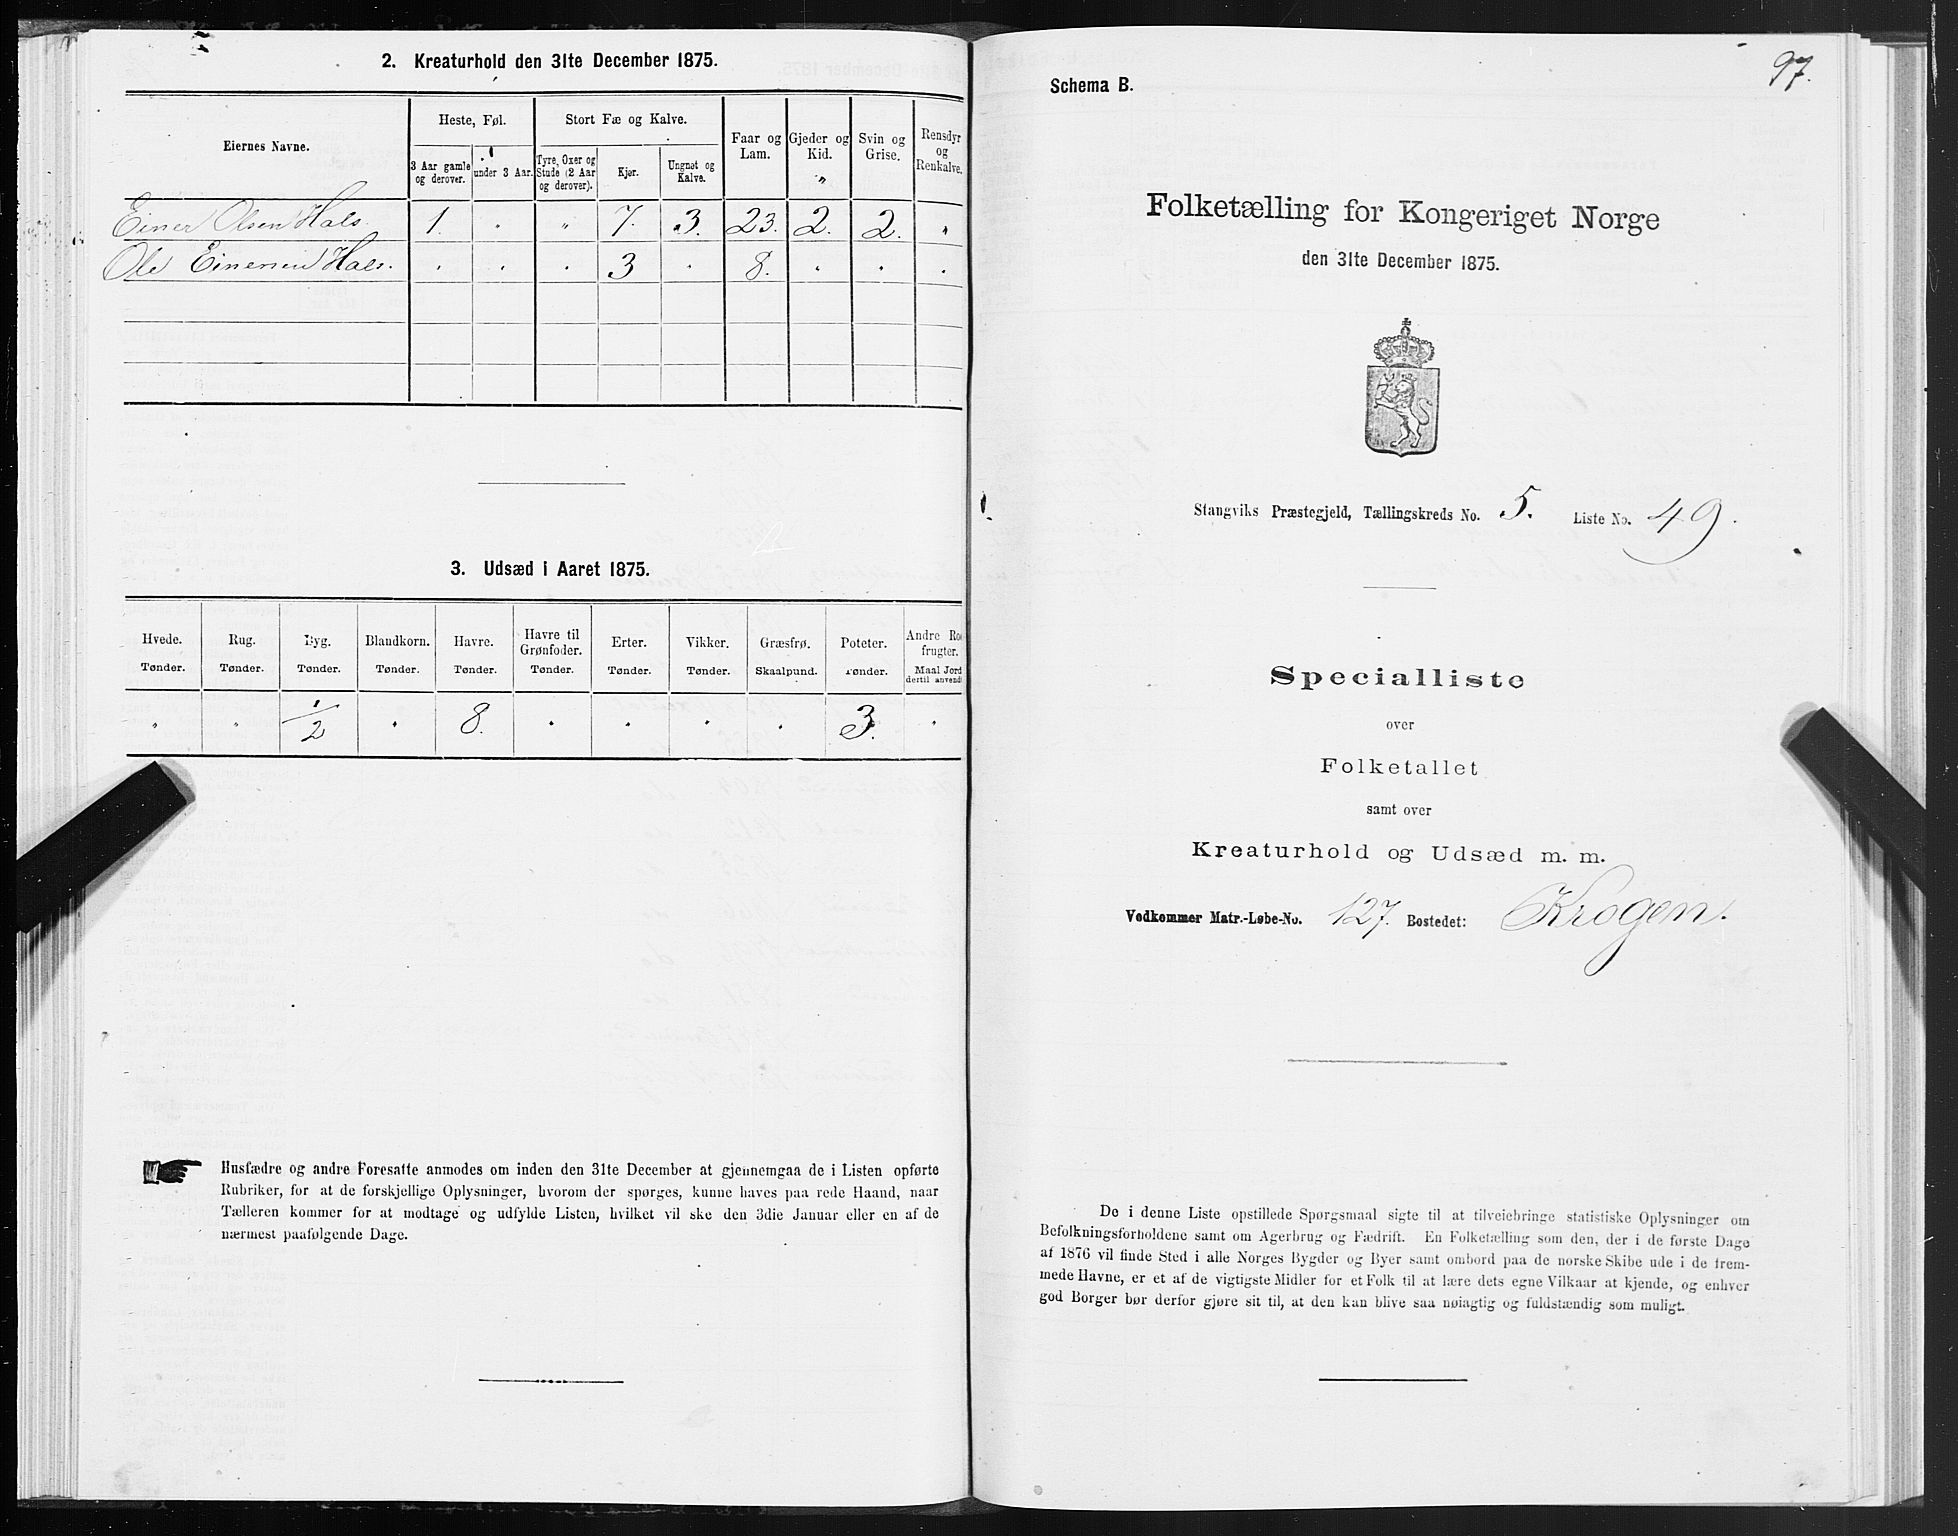 2. Kreaturhold den 31te December 1875.
Eiernes Navne.
Heste, Føl.
Stort Fæ og Kalve.
Faar og Lam.
Gjeder og Kid.
Svin og Grise.
Rensdyr og Renkalve.
3 Aar gamle og derover.
under 3 Aar.
Tyre, Oxer og Stude (2 Aar og derover).
Kjør.
Ungnøt og Kalve.
Einer Olsen Hals 1. " " 7. 3. 23. 2. 2. "
Ole Einersen Hals. " " " 3 " 8. " " "
3. Udsæd i Aaret 1875.
Hvede. Rug. Byg. Blandkorn. Havre. Havre til Grønfoder. Erter. Vikker. Græsfrø. Poteter. Andre Rodfrugter.
Tønder. Tønder. Tønder. Tønder. Tønder. Tønder. Tønder. Tønder. Skaalpund. Tønder. Maal Jord dertil anvendt
" " 1/2 " 8. " " " " 3. "
Husfædre og andre Foresatte anmodes om inden den 31te December at gjennemgaa de i Listen opførte
Rubriker, for at de forskjellige Oplysninger, hvorom der spørges, kunne haves paa rede Haand, naar
Tælleren kommer for at modtage og udfylde Listen, hvilket vil ske den 3die Januar eller en af de
nærmest paafølgende Dage.
97.
Schema B.
Folketælling for Kongeriget Norge
den 31te December 1875.
Stangviks Præstegjeld, Tællingskreds No. 5. Liste No. 49.
Specialliste
over
Folketallet
samt over
Kreaturhold og Udsæd m. m.
Vedkommer Matr.-Løbe-No. 127. Bostedet: Krogen.
De i denne Liste opstillede Spørgsmaal sigte til at tilveiebringe statistiske Oplysninger om
Befolkningsforholdene samt om Agerbrug og Fædrift. En Folketælling som den, der i de første Dage
af 1876 vil finde Sted i alle Norges Bygder og Byer samt ombord paa de norske Skibe ude i de frem-
mede Havne, er et af de vigtigste Midler for et Folk til at lære dets egne Vilkaar at kjende, og enhver
god Borger bør derfor gjøre sit til, at den kan blive saa nøiagtig og fuldstændig som muligt.